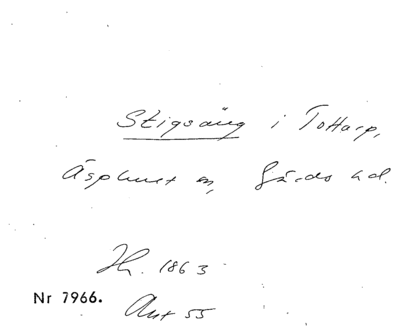 Stigsäng i Tottarp,
Äsphult sn, Gärds hd.
Jh. 1863
Nr 7966.
Avt 55